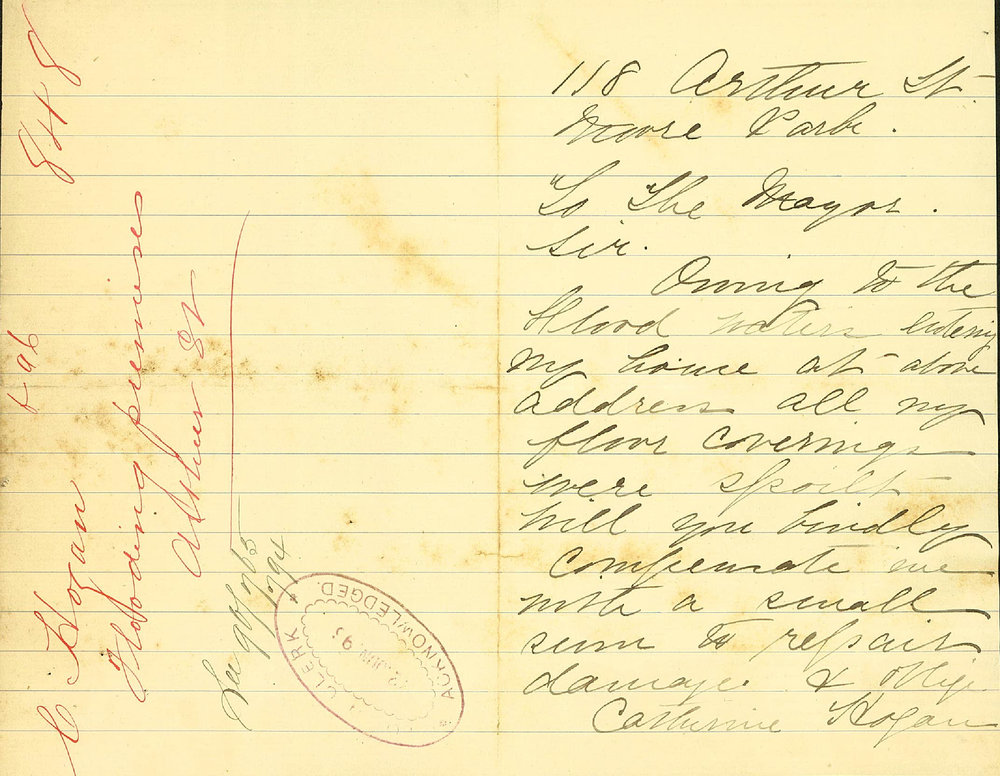 118 Arthur St.
Moore Park.
To The Mayor.
Sir.
Owing to the
Flood waters entering
my house at above
address all my
floor coverings
were spoilt
Will you kindly
compensate me
with a small
sum to repair
damages & oblige
Catherine Hogan
C. Hogan 848
Flooding premises
Arthur St
CLERK
ACKNOWLEDGED.